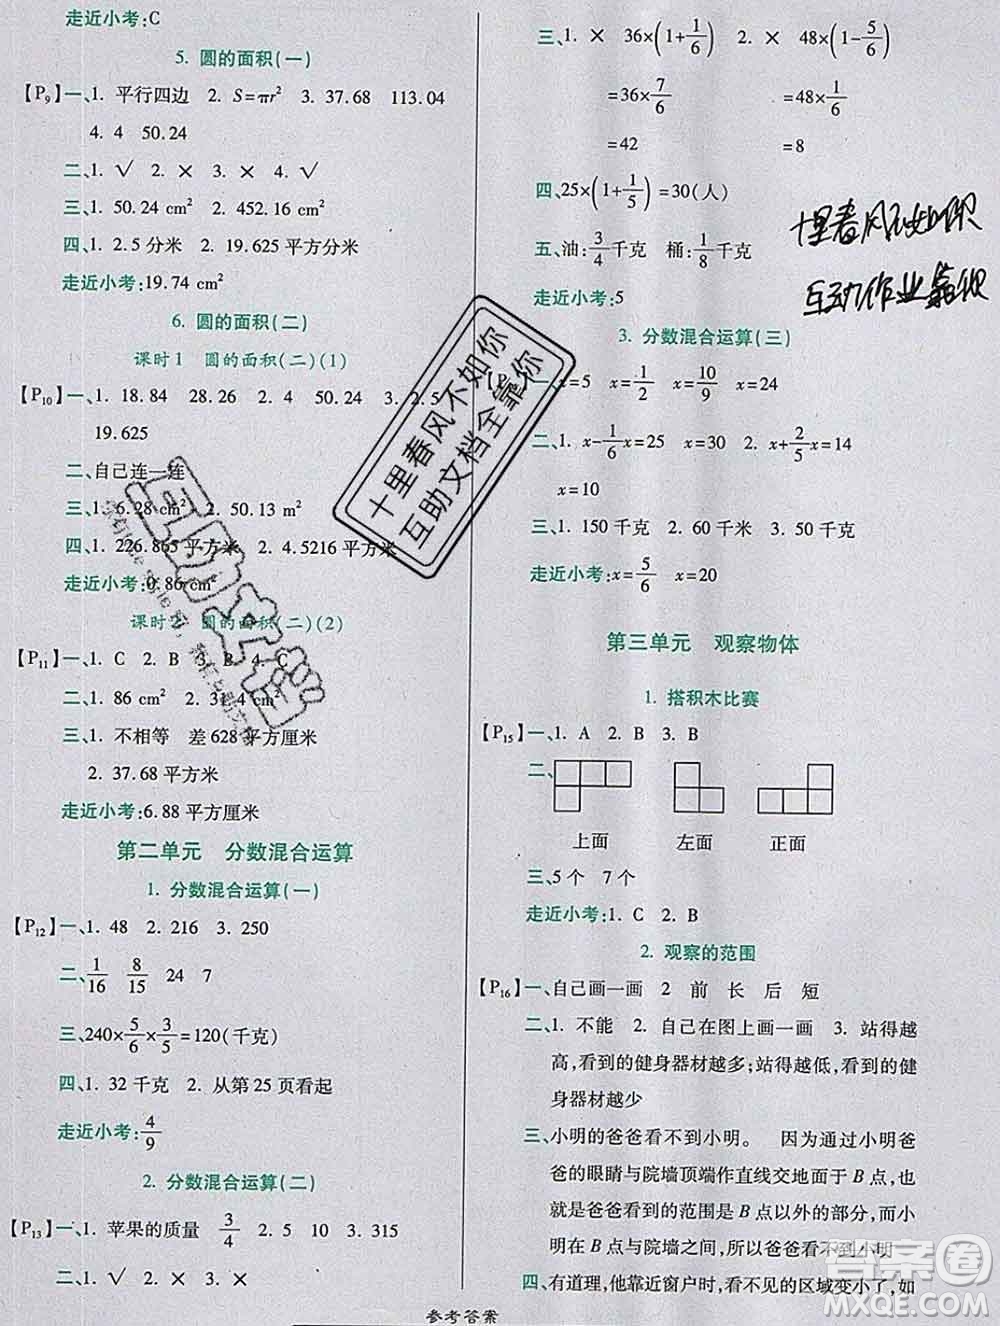 走近小考:C
5. 圆的面积(一)
【P9】一、1. 平行四边 2. S=πr² 3. 37.68 113.04
4. 4 50.24
二、1. √ 2. × 3. × 4. √
三、1. 50.24 cm² 2. 452.16 cm²
四、1. 2.5 分米 2. 19.625 平方分米
走近小考:19.74 cm²
6. 圆的面积(二)
课时1 圆的面积(二)(1)
【P10】一、1. 18.84 28.26 2. 4 50.24 3. 2.5
19.625
二、自己连一连
三、1. 6.28 cm² 2. 50.13 m²
四、1. 226.865 平方米 2. 4.5216 平方米
走近小考:0.86 cm²
课时2 圆的面积(二)(2)
【P11】一、1. C 2. B 3. B 4. C
二、1. 86 cm² 2. 31.4 cm²
三、1. 不相等 差628 平方厘米
2. 37.68 平方米
走近小考:6.88 平方厘米
第二单元 分数混合运算
1. 分数混合运算(一)
【P12】一、1. 48 2. 216 3. 250
二、1/16 8/15 24 7
三、240×5/6×3/5=120(千克)
四、1. 32 千克 2. 从第 25 页看起
走近小考:4/9
2. 分数混合运算(二)
【P13】一、1. 苹果的质量 3/4 2. 5 10 3. 315
二、1. √ 2. × 3. ×
三、1. × 36×(1+1/6) 2. × 48×(1-5/6)
=36×7/6 =48×1/6
=42 =8
四、25×(1+1/5)=30(人)
五、油:3/4千克 桶:1/8千克
走近小考:5
3. 分数混合运算(三)
x=5 x=1/2 x=10/9 x=24
二、1. x-1/6x=25 x=30 2. x+2/5x=14
x=10
三、1. 150 千克 2. 60 千米 3. 50 千克
走近小考:x=5/6 x=20
第三单元 观察物体
1. 搭积木比赛
【P15】一、1. A 2. B 3. B
二、
上面 左面 正面
三、5 个 7 个
走近小考:1. C 2. B
2. 观察的范围
【P16】一、自己画一画 2 前 长 后 短
二、1. 不能 2. 自己在图上画一画 3. 站得越
高,看到的健身器材越多;站得越低,看到的健
身器材越少
三、小明的爸爸看不到小明。 因为通过小明爸
爸的眼睛与院墙顶端作直线交地面于 B 点,所
以是爸爸看到的范围是 B 点以外的部分,而小
明在 B 点与院墙之间,所以爸爸看不到小明
四、有道理,他靠近窗户时,看不见的区域变小了,如
参考答案
十里春风不如你
互动作业靠你
十里春风不如你
互助文档全靠你
互助文档
答案圈
MXQE.COM